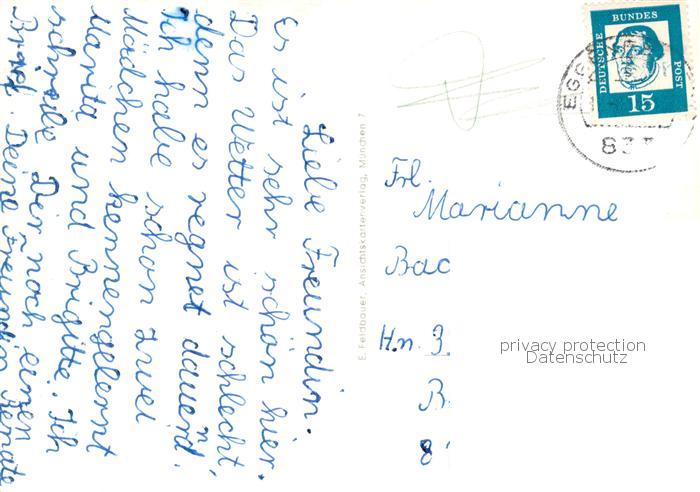 Liebe Freundin.
Es ist sehr schön hier.
Das Wetter ist schlecht,
denn es regnet dauernd.
Ich habe schon zwei
Mädchen kennengelernt
Marita und Brigitte. Ich
schreibe Dir noch einen
Brief. Deine Freundin Renate
E. Feldbauer, Ansichtskartenverlag, München 7
DEUTSCHE
BUNDES
POST
15
EGG
833
Frl.
Marianne
Bac
H.n. 3
B
8
privacy protection
Datenschutz